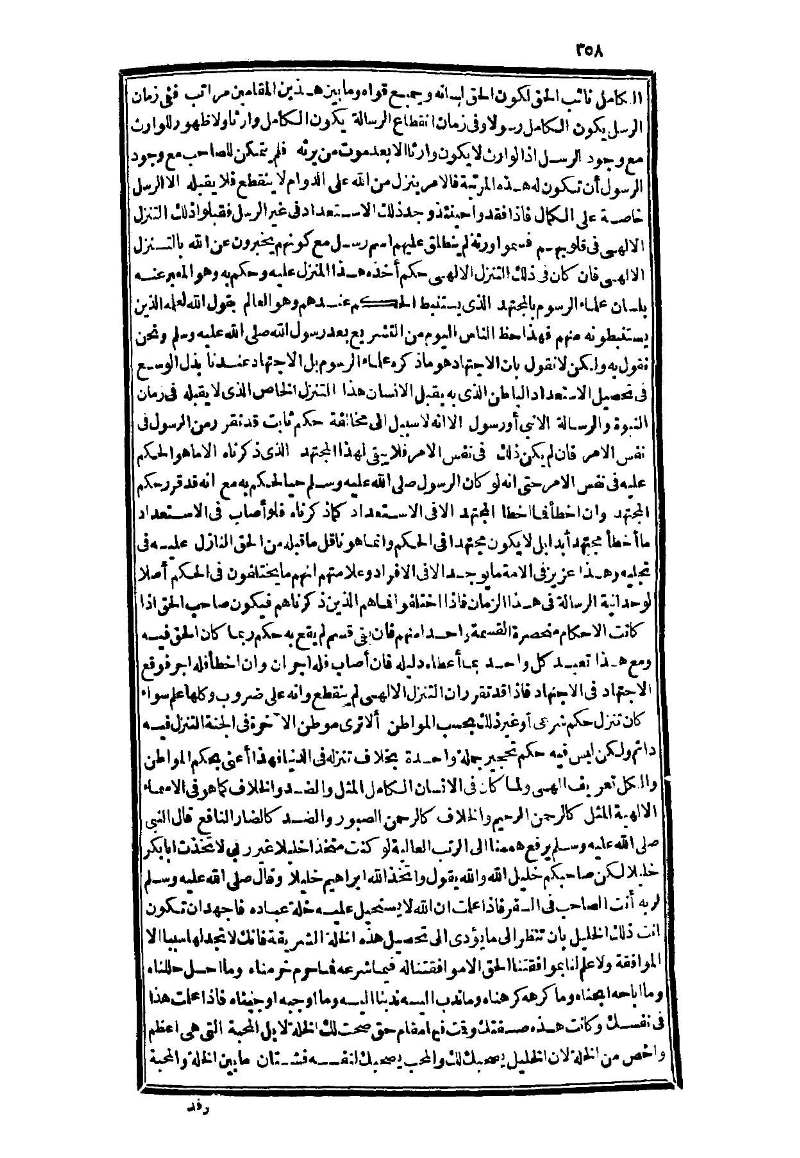 ٣٥٨
الكامل نائب الحق لكون الحق لسانه وجميع قواه وما بين هذين المقامين مراتب ففى زمان
الرسل يكون الكامل رسولا وفى زمان انقطاع الرسالة يكون الكامل وارثا ولا ظهور للوارث
مع وجود الرسل اذ الوارث لا يكون وارثا الا بعد موت من يرثه فلم يتمكن للصاحب مع وجود
الرسول أن تكون له هذه المرتبة فالامر ينزل من الله على الدوام لا ينقطع فلا يقبله الا الرسل
خاصة على الكمال فاذا فقدوا حينئذ وجد ذلك الاستعداد فى غير الرسل فقبلوا ذلك التنزل
الالهى فى قلوبهم فسموا ورثة لم ينطلق عليهم اسم رسل مع كونهم يخبرون عن الله بالتنزل
الالهى فان كان فى ذلك التنزل الالهى حكم أخذه هذا المنزل عليه وحكم به وهو المعبر عنه
بلسان علماء الرسوم بالمجتهد الذى يستنبط الحكم عندهم وهو العالم بقول الله لعلمه الذين
يستنبطونه منهم فهذا حظ الناس اليوم من التشريع بعد رسول الله صلى الله عليه وسلم ونحن
نقول به ولكن لا نقول بان الاجتهاد هو ما ذكره علماء الرسوم بل الاجتهاد عندنا بذل الوسع
فى تحصيل الاستعداد الباطن الذى به يقبل الانسان هذا التنزل الخاص الذى لا يقبله فى زمان
النبوة والرسالة الا نبي أو رسول الا انه لا سبيل الى مخالفة حكم ثابت قد تقرر من الرسول فى
نفس الامر فان لم يكن ذلك فى نفس الامر فلا يبقى لهذا المجتهد الذى ذكرناه الا ما هو الحكم
عليه فى نفس الامر حتى انه لو كان الرسول صلى الله عليه وسلم حيا لحكم به مع انه قد قرر حكم
المجتهد وان اخطأ فما اخطا المجتهد الا فى الاستعداد كما ذكرناه فلو أصاب فى الاستعداد
ما أخطأ مجتهد أبدا بل لا يكون مجتهدا فى الحكم وانما هو ناقل ما قبله من الحق النازل عليه فى
تجليه وهذا عزيز فى الامة ما يوجد الا فى الافراد وعلامتهم انهم ما يختلفون فى الحكم أصلا
لوحدانية الرسالة فى هذا الزمان فاذا اختلفوا فما هم الذين ذكرناهم فيكون صاحب الحق اذا
كانت الاحكام منحصرة القسمة واحدا منهم فان بقى قسم لم يقع به حكم ربما كان الحق فيه
ومع هذا تعبد كل واحد بما أعطاه دليله فان أصاب فله اجران وان اخطأ فله اجر فوقع
الاجتهاد فى الاجتهاد فاذا قد تقرر ان التنزل الالهى لم ينقطع وانه على ضروب وكلها علم سواء
كان تنزل حكم شرعى أو غير ذلك بحسب المواطن ألا ترى موطن الآخرة فى الجنة التنزل فيه
دائم ولكن ليس فيه حكم تحجير جملة واحدة بخلاف تنزله فى الدنيا فهذا أعنى بحكم المواطن
والكل تعريف الهى ولما كان فى الانسان الكامل المثل والضد والخلاف كما هو فى الاسماء
الالهية المثل كالرحمن الرحيم والخلاف كالرحمن الصبور والضد كالضار النافع قال النبي
صلى الله عليه وسلم يرفع هممنا الى الرتب العالية لو كنت متخذا خليلا غير ربى لاتخذت ابا بكر
خليلا لكن صاحبكم خليل الله والله يقول واتخذ الله ابراهيم خليلا وقال صلى الله عليه وسلم
لربه أنت الصاحب فى السفر فاذا علمت ان الله لا يستحيل عليه خلة عباده فاجهد ان تكون
انت ذلك الخليل بان تنظر الى ما يؤدى الى تحصيل هذه الخلة الشريفة فانك لا تجد لها سببا الا
الموافقة ولا علم لنا بموافقتنا الحق الا موافقتنا له فيما شرعه فما حرم حرمناه وما احل حللناه
وما اباحه ابحناه وما كرهه كرهناه وما ندب اليه ندبنا اليه وما اوجبه اوجبناه فاذا علمت هذا
فى نفسك وكانت هذه صفتك وقت فى مقام حق صحت لك الخلة لا بل المحبة التى هى اعظم
واخص من الخلة لان الخليل يصحبك لك والمحب يصحبك لنفسه فشتان ما بين الخلة والمحبة
رفد